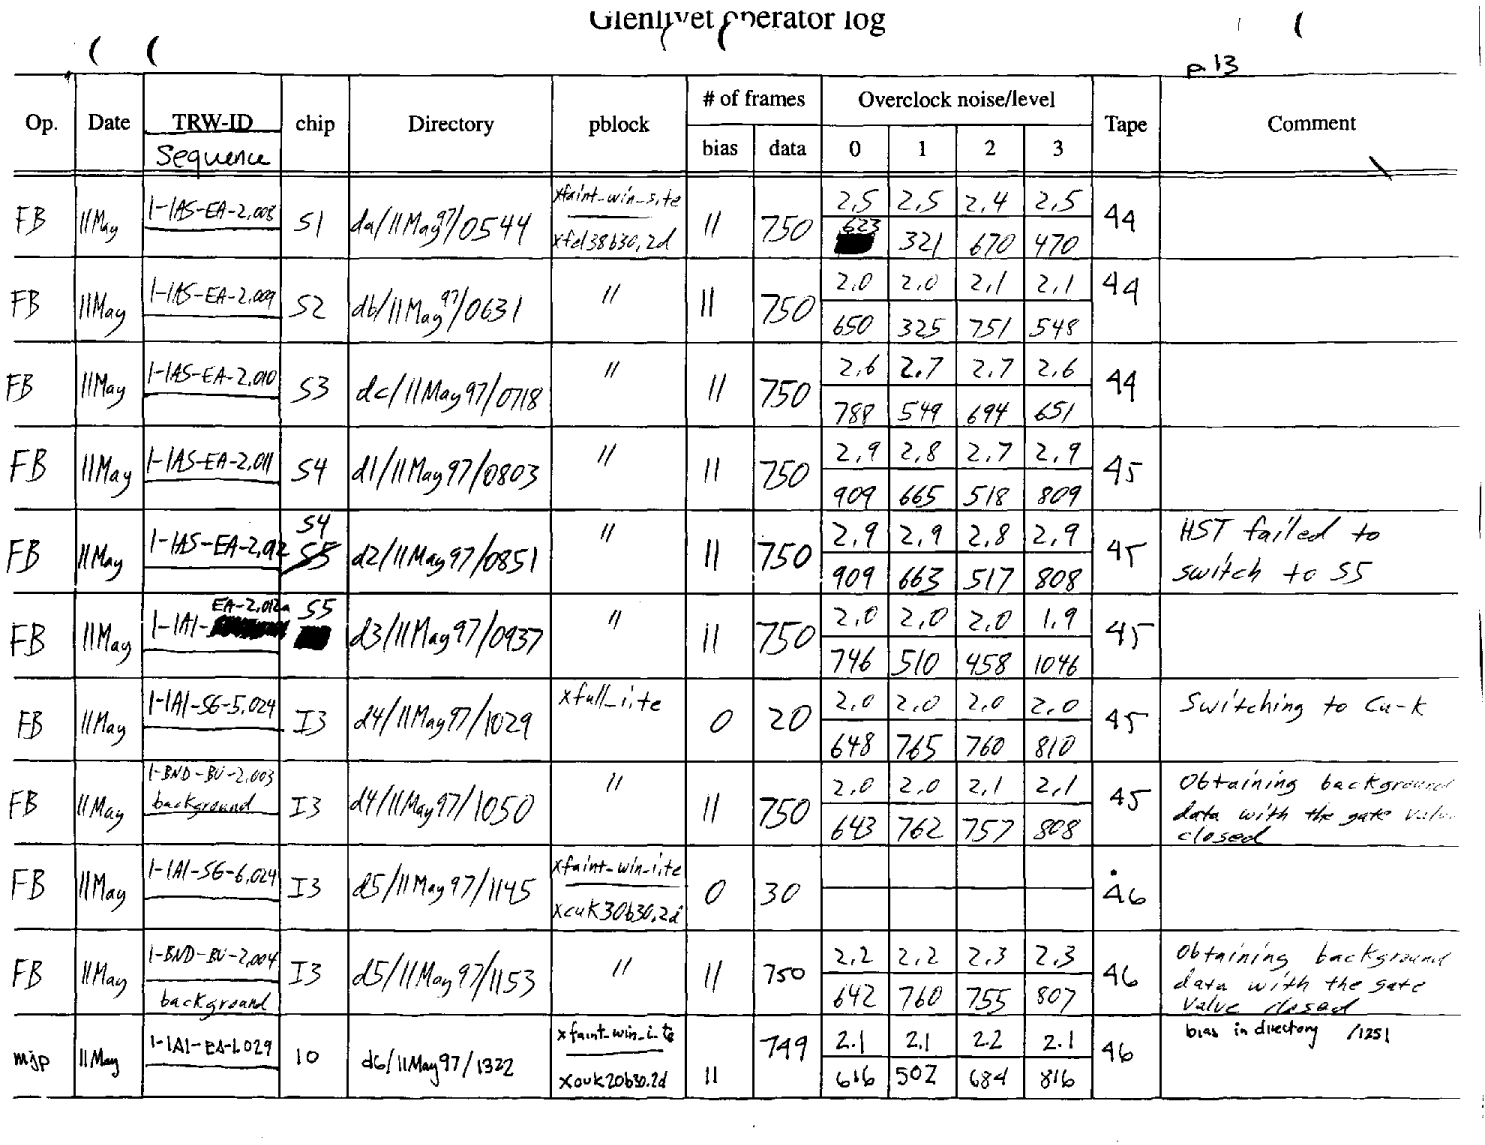 Glenlivet operator log
p.13
Op. Date TRW-ID chip Directory pblock # of frames Overclock noise/level Tape Comment
Sequence bias data 0 1 2 3
FB 11May 1-IAS-EA-2.008 S1 da/11May97/0544 xfaint_win_s.te 11 750 2.5 2.5 2.4 2.5 44
xfel38b30.2d 623 321 670 470
FB 11May 1-IAS-EA-2.009 S2 db/11May97/0631 " 11 750 2.0 2.0 2.1 2.1 44
650 325 751 548
FB 11May 1-IAS-EA-2.010 S3 dc/11May97/0718 " 11 750 2.6 2.7 2.7 2.6 44
788 549 694 651
FB 11May 1-IAS-EA-2.011 S4 d1/11May97/0803 " 11 750 2.9 2.8 2.7 2.9 45
909 665 518 809
FB 11May 1-IAS-EA-2.012 S4 d2/11May97/0851 " 11 750 2.9 2.9 2.8 2.9 45 HST failed to
S5 909 663 517 808 switch to S5
FB 11May 1-IAI-EA-2.012a S5 d3/11May97/0937 " 11 750 2.0 2.0 2.0 1.9 45
746 510 458 1046
FB 11May 1-IAI-SG-5.024 I3 d4/11May97/1029 xfull_i.te 0 20 2.0 2.0 2.0 2.0 45 Switching to Cu-K
648 765 760 810
FB 11May 1-BND-BU-2.003 I3 d4/11May97/1050 " 11 750 2.0 2.0 2.1 2.1 45 Obtaining background
background 643 762 757 808 data with the gate valve
closed
FB 11May 1-IAI-SG-6.024 I3 d5/11May97/1145 xfaint_win_i.te 0 30 46
xcuk30b30.2d
FB 11May 1-BND-BU-2.004 I3 d5/11May97/1153 " 11 750 2.2 2.2 2.3 2.3 46 Obtaining background
background 642 760 755 807 data with the gate
valve closed
mjp 11May 1-IAI-EA-1.029 I0 d6/11May97/1322 xfaint_win_i.te 11 749 2.1 2.1 2.2 2.1 46 bias in directory /1251
xcuk20b30.2d 616 502 684 816